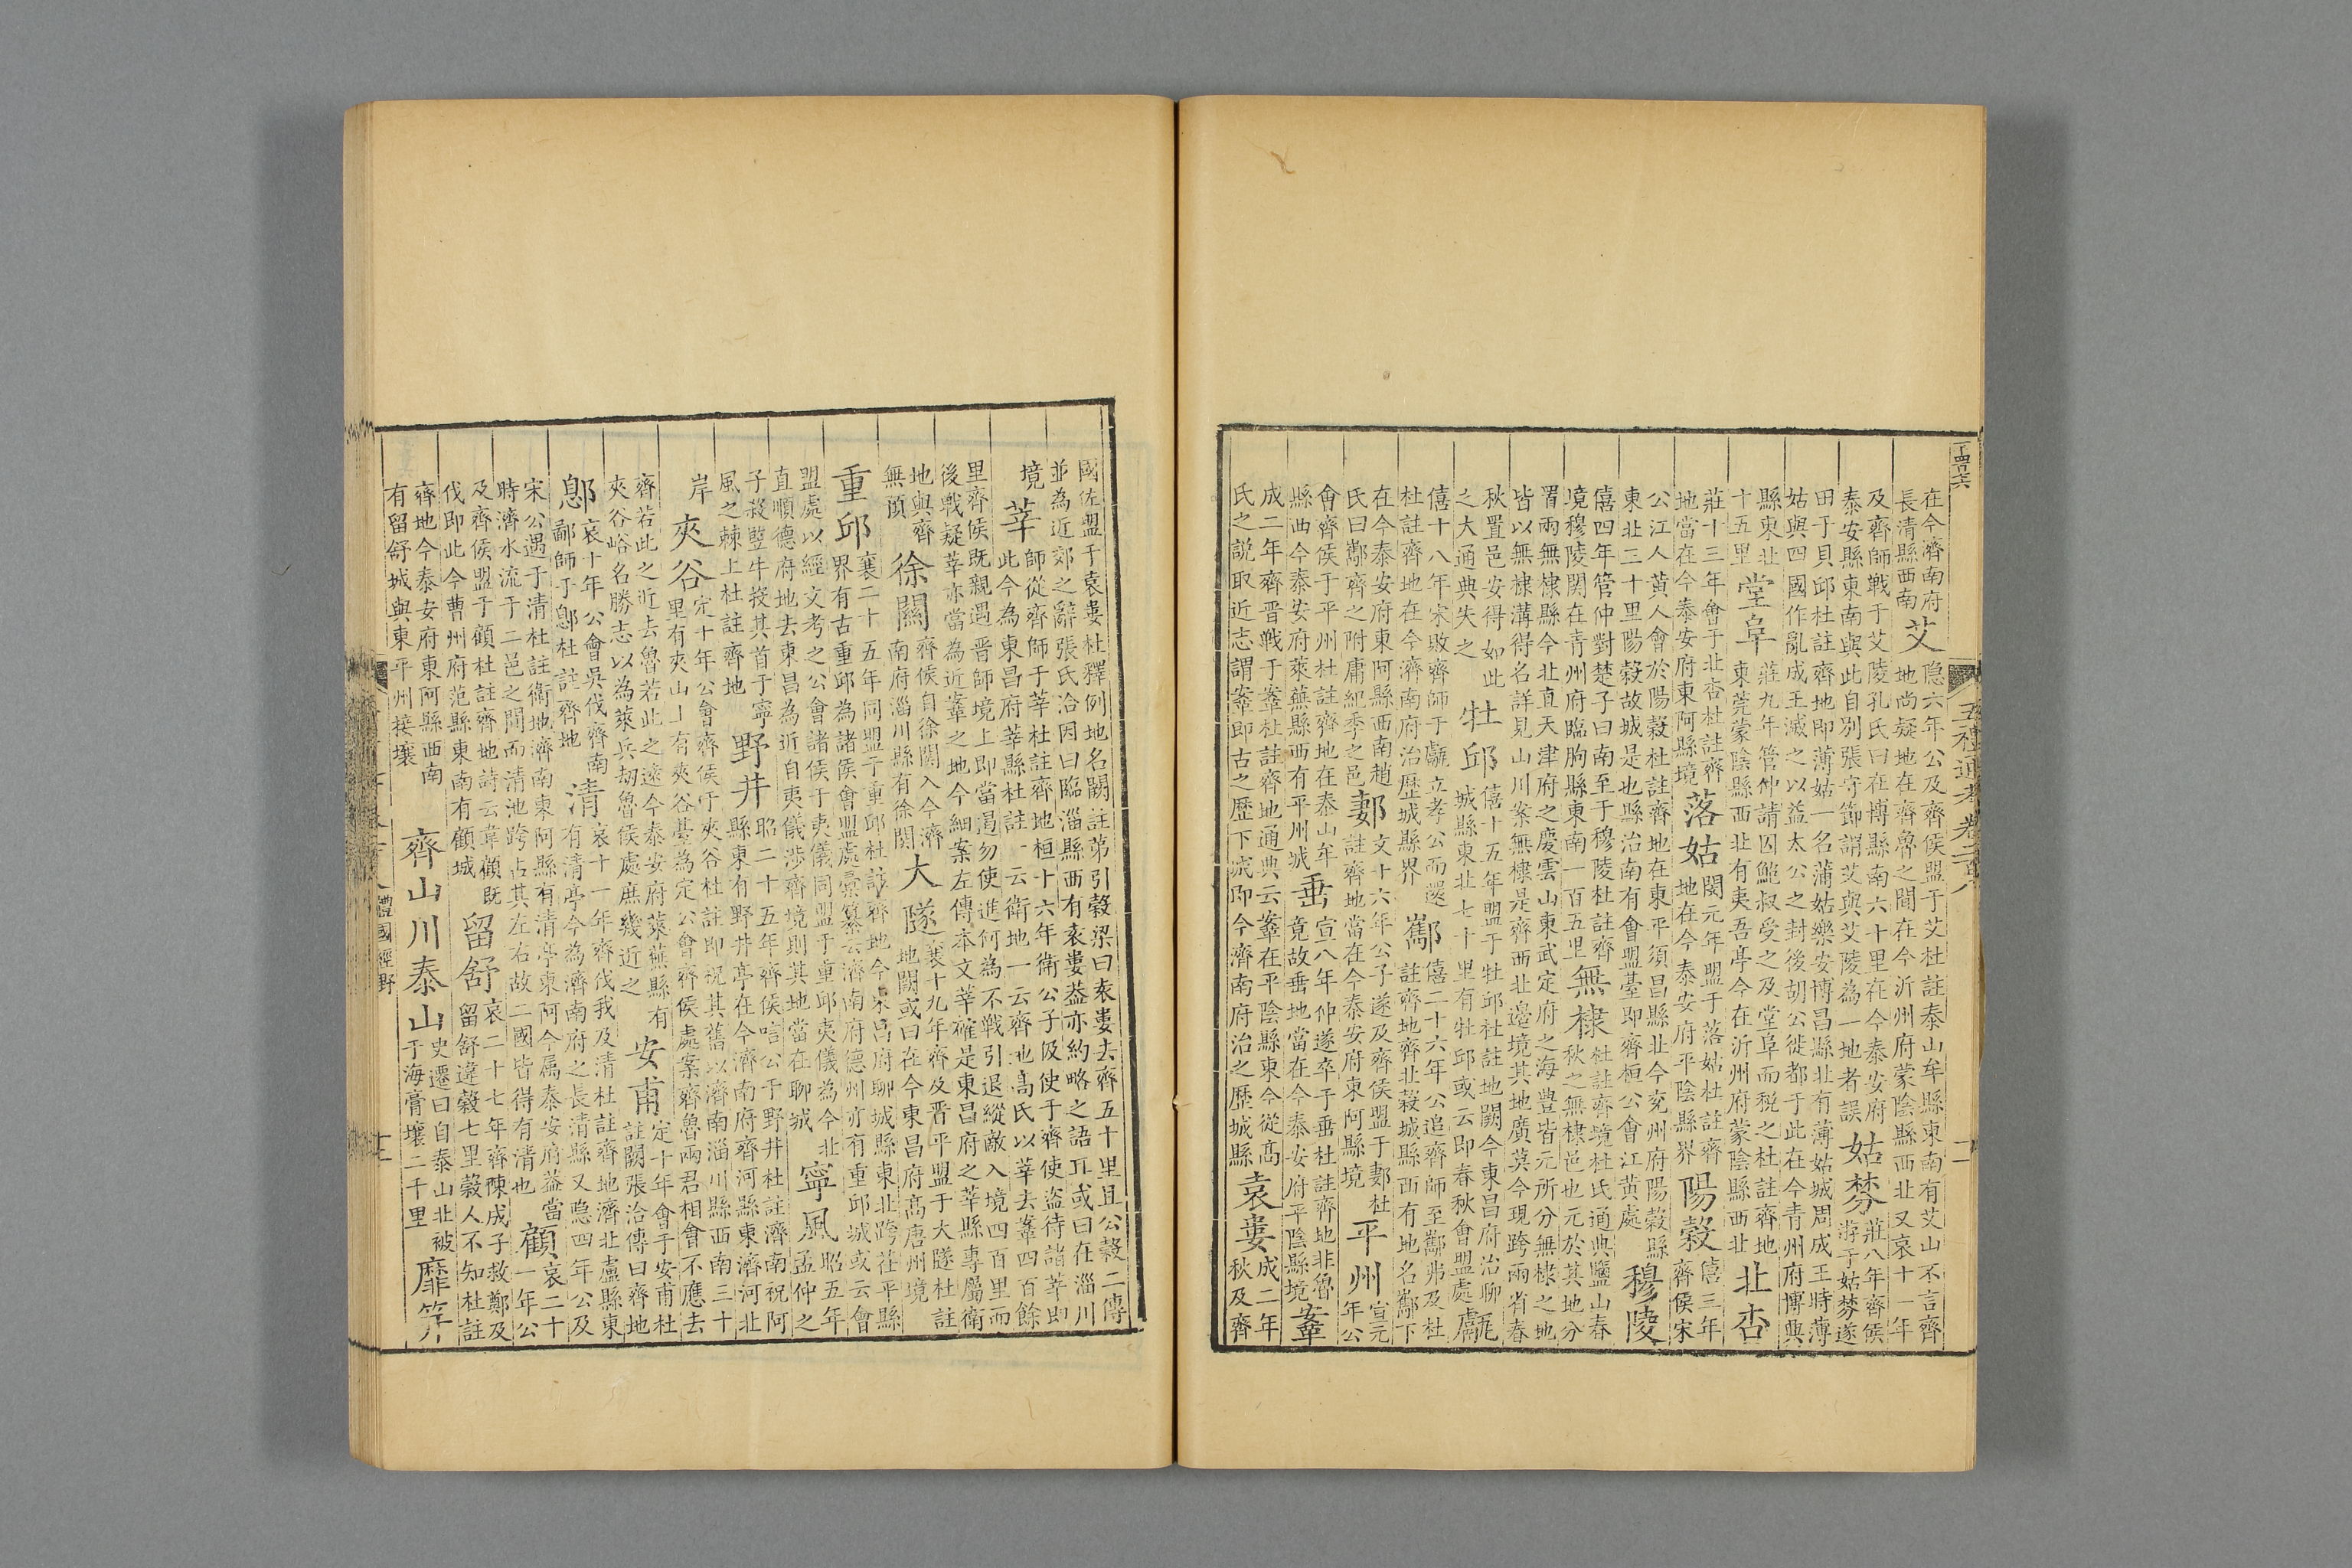 五禮通考卷二百八
在今濟南府
長清縣西南
艾
隐六年公及齊侯盟于艾杜註泰山牟縣東南有艾山不言齊
地尚疑地在齊魯之間在今沂州府蒙陰縣西北又哀十一年
及齊師戰于艾陵孔氏曰在博縣南六十里在今泰安府
泰安縣東南與此自别張守節謂艾與艾陵為一地者誤
姑棼
莊八年齊侯
游于姑棼遂
田于貝邱杜註齊地即薄姑一名蒲姑樂安博昌縣北有薄姑城周成王時薄
姑與四國作亂成王滅之以益太公之封後胡公徙都于此在今青州府博興
縣東北
十五里
堂阜
莊九年管仲請囚鮑叔受之及堂阜而稅之杜註齊地
東莞蒙陰縣西北有夷吾亭今在沂州府蒙陰縣西北
北杏
莊十三年會于北杏杜註齊
地當在今泰安府東阿縣境
落姑
閔元年盟于落姑杜註齊
地在今泰安府平陰縣界
陽穀
僖三年
齊侯宋
公江人黄人會於陽穀杜註齊地在東平須昌縣北今兖州府陽穀縣
東北三十里陽穀故城是也縣治南有會盟臺即齊桓公會江黄處
穆陵
僖四年管仲對楚子曰南至于穆陵杜註齊
境穆陵関在青州府臨朐縣東南一百五里
無棣
杜註齊境杜氏通典鹽山春
秋之無棣邑也元於其地分
置兩無棣縣今北直天津府之慶雲山東武定府之海豐皆元所分無棣之地
皆以無棣溝得名詳見山川案無棣是齊西北邉境其地廣莫今現跨兩省春
秋置邑安得如此
之大通典失之
牡邱
僖十五年盟于牡邱杜註地闕今東昌府治聊
城縣東北七十里有牡邱或云即春秋會盟處
甗
僖十八年宋敗齊師于甗立孝公而還
杜註齊地在今濟南府治歷城縣界
酅
僖二十六年公追齊師至酅弗及杜
註齊地齊北穀城縣西有地名酅下
在今泰安府東阿縣西南趙
氏曰酅齊之附庸紀季之邑
郪
文十六年公子遂及齊侯盟于郪杜
註齊地當在今泰安府東阿縣境
平州
宣元
年公
會齊侯于平州杜註齊地在泰山牟
縣西今泰安府萊蕪縣西有平州城
垂
宣八年仲遂卒于垂杜註齊地非魯
竟故垂地當在今泰安府平陰縣境
鞌
成二年齊晋戰于鞌杜註齊地通典云鞌在平陰縣東今從髙
氏之説取近志謂鞌即古之歷下城即今濟南府治之歷城縣
袁婁
成二年
秋及齊
國佐盟于袁婁杜釋例地名闕註苐引穀梁曰袁婁去齊五十里且公穀二傳
並為近郊之辭張氏洽因曰臨淄縣西有袁婁葢亦約略之語耳或曰在淄川
境
莘
師從齊師于莘杜註齊地桓十六年衛公子伋使于齊使盗待諸莘即
此今為東昌府莘縣杜註一云衛地一云齊地髙氏以莘去鞌四百餘
里齊侯既親遇晋師境上即當遏勿使進何為不戰引退縱敵入境四百里而
後戰疑莘亦當為近鞌之地今細案左傳本文莘確是東昌府之莘縣專屬衛
地與齊
無預
徐關
齊侯自徐関入今濟
南府淄川縣有徐関
大隧
襄十九年齊及晋平盟于大隧杜註
地闕或曰在今東昌府髙唐州境
重邱
襄二十五年同盟于重邱杜註齊地今東昌府聊城縣東北跨茌平縣
界有古重邱為諸侯會盟處彚纂云濟南府德州亦有重邱城或云會
盟處以經文考之公會諸侯于夷儀同盟于重邱夷儀為今北
直順德府地去東昌為近自夷儀涉齊境則其地當在聊城
寧風
昭五年
孟仲之
子殺豎牛投其首于寧
風之棘上杜註齊地
野井
昭二十五年齊侯唁公于野井杜註濟南祝阿
縣東有野井亭在今濟南府齊河縣東濟河北
岸
夾谷
定十年公會齊侯于夾谷杜註即祝其舊以濟南淄川縣西南三十
里有夾山上有夾谷臺為定公會齊侯處案齊魯兩君相會不應去
齊若此之近去魯若此之遠今泰安府萊蕪縣有
夾谷峪名勝志以為萊兵刼魯侯處庶幾近之
安甫
定十年會于安甫杜
註闕張洽傳曰齊地
鄎
哀十年公會吳伐齊南
鄙師于鄎杜註齊地
清
哀十一年齊伐我及清杜註齊地濟北盧縣東
有清亭今為濟南府之長清縣又隐四年公及
宋公遇于清杜註衞地濟南東阿縣有清亭東阿今属泰安府葢當
時濟水流于二邑之間而清池跨占其左右故二國皆得有清也
顧
哀二十
一年公
及齊侯盟于顧杜註齊地詩云韋顧既
伐即此今曹州府范縣東南有顧城
留舒
哀二十七年齊陳成子救鄭及
留舒違穀七里穀人不知杜註
齊地今泰安府東阿縣西南
有留舒城與東平州接壤
齊山川泰山
史遷曰自泰山北被
于海膏壤二千里
靡笄